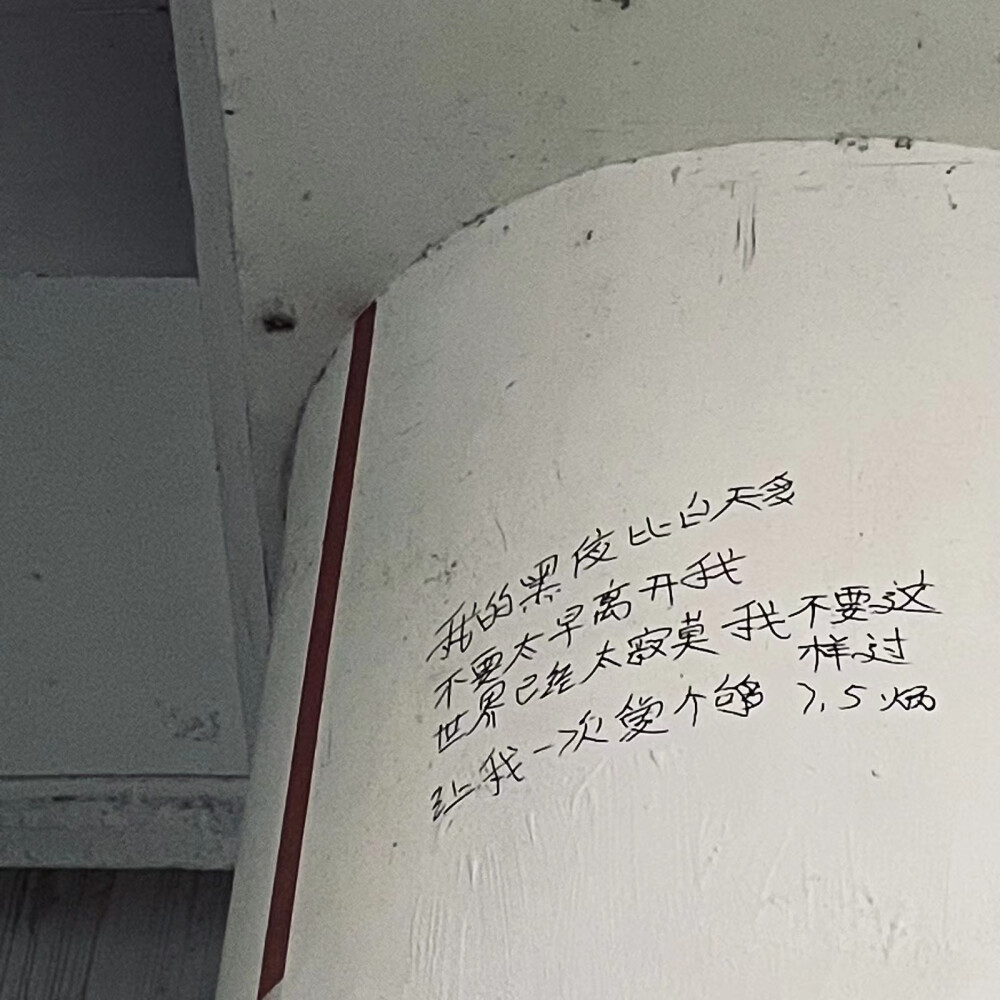 我的黑夜比白天多
不要太早离开我
世界已经太寂寞 我不要这
样过
让我一次爱个够 7.5 炳